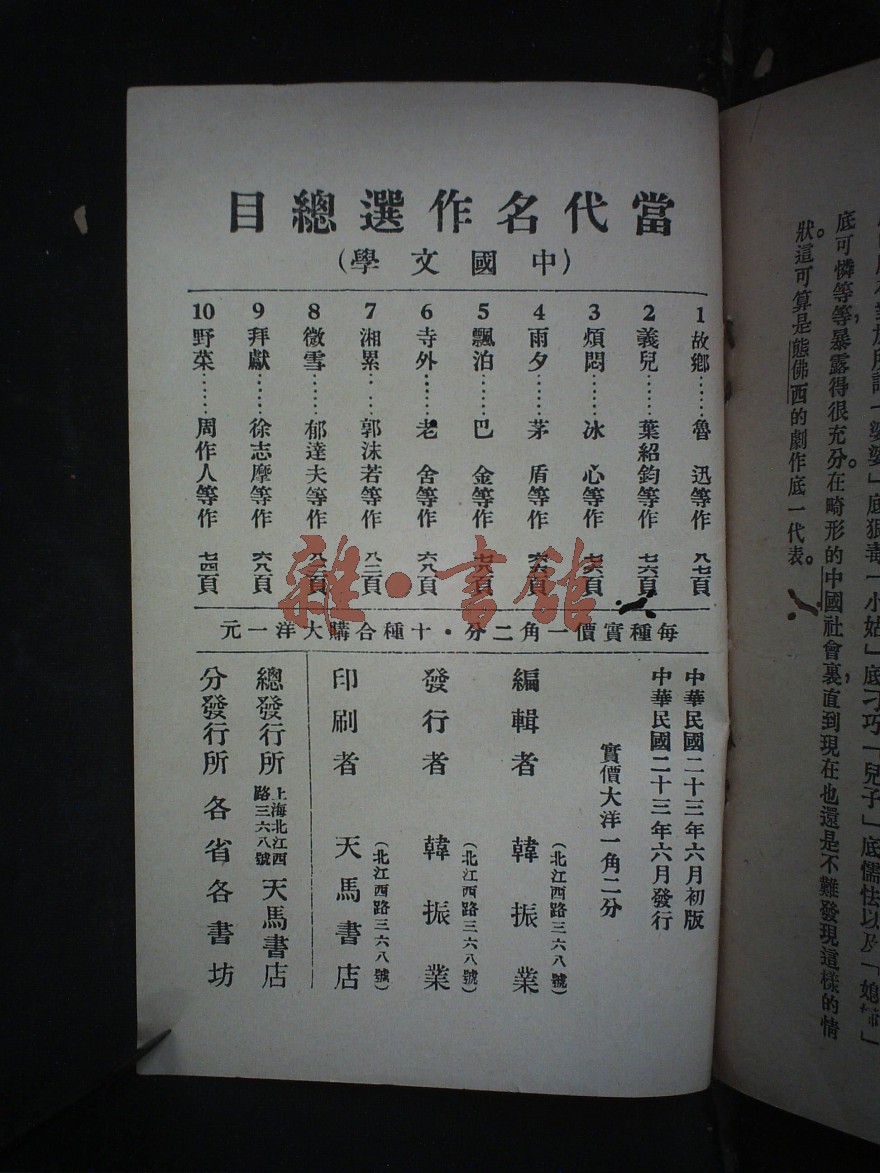 當代名作選總目
(中國文學)
1 故鄉……魯迅等作 八七頁
2 義兒……葉紹鈞等作 七六頁
3 煩悶……冰心等作
4 雨夕……茅盾等作
5 飄泊……巴金等作
6 寺外……老舍等作 六八頁
7 湘累……郭沫若等作 八二頁
8 微雪……郁達夫等作
9 拜獻……徐志摩等作 六八頁
10 野菜……周作人等作 七四頁
每種實價一角二分·十種合購大洋一元
中華民國二十三年六月初版
中華民國二十三年六月發行
實價大洋一角二分
編輯者 韓振業
(北江西路三六八號)
發行者 韓振業
(北江西路三六八號)
印刷者 天馬書店
(北江西路三六八號)
總發行所 上海北江西路三六八號 天馬書店
分發行所 各省各書坊
雜·書館
底可憐等等,暴露得很充分。在畸形的中國社會裏,直到現在也還是不難發現這樣的情
狀。這可算是熊佛西的劇作底一代表。